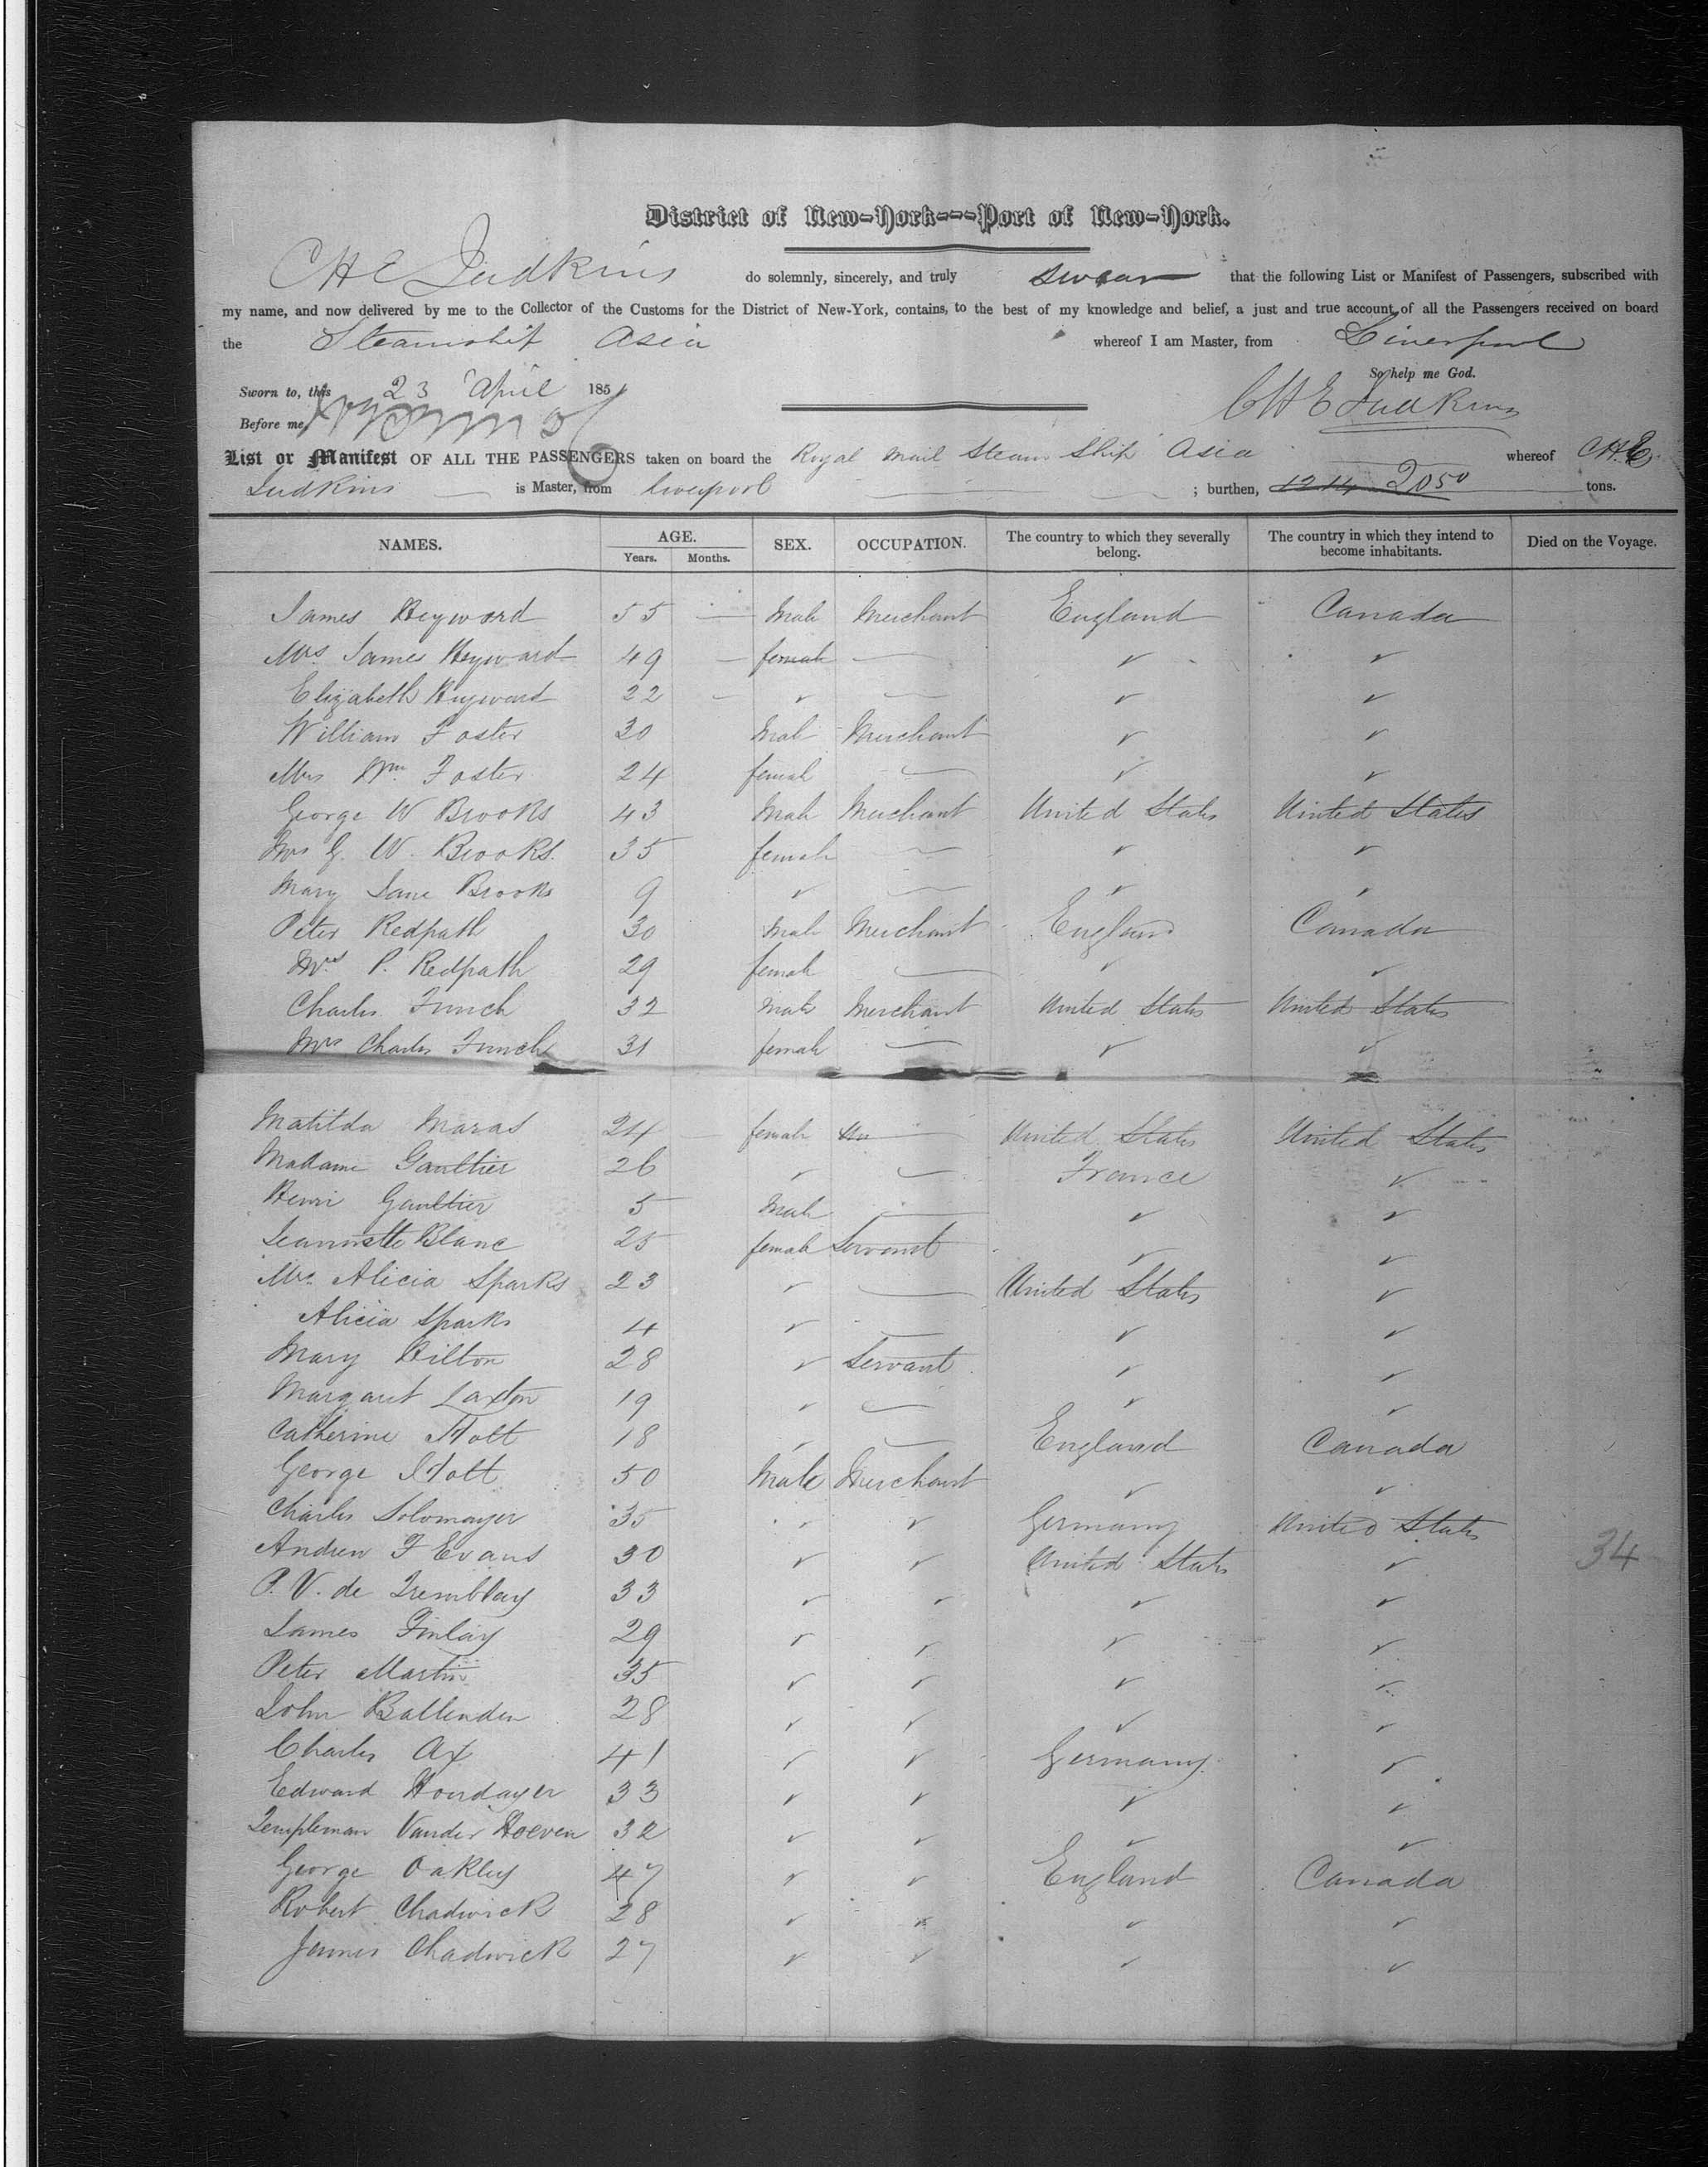 District of New-York---Port of New-York.
CHE Judkins do solemnly, sincerely, and truly swear that the following List or Manifest of Passengers, subscribed with
my name, and now delivered by me to the Collector of the Customs for the District of New-York, contains, to the best of my knowledge and belief, a just and true account of all the Passengers received on board
the Steamship Asia whereof I am Master, from Liverpool
So help me God.
Sworn to, this 23 April 185
CHE Judkins
Before me,
List or Manifest OF ALL THE PASSENGERS taken on board the Royal Mail Steam Ship Asia whereof CHE
Judkins is Master, from Liverpool ; burthen, 1214 2050 tons.
NAMES. AGE. Years. Months. SEX. OCCUPATION. The country to which they severally belong. The country in which they intend to become inhabitants. Died on the Voyage.
James Heyward 55 — Male Merchant England Canada
Mrs James Heyward 49 — female — ✓ ✓
Elizabeth Heyward 22 — ✓ — ✓ ✓
William Foster 30 Male Merchant ✓ ✓
Mrs Wm Foster 24 female — ✓ ✓
George W Brooks 43 Male Merchant United States United States
Mrs G. W. Brooks 35 female — ✓ ✓
Mary Jane Brooks 9 ✓ — ✓ ✓
Peter Redpath 30 Male Merchant England Canada
Mrs P. Redpath 29 female — ✓ ✓
Charles Funch 32 Male Merchant United States United States
Mrs Charles Funch 31 female — ✓ ✓
Matilda Maras 24 — female — United States United States
Madame Gaultier 26 ✓ — France ✓
Henri Gaultier 5 Male — ✓ ✓
Jeannette Blanc 25 female Servant ✓ ✓
Mrs Alicia Sparks 23 ✓ — United States ✓
Alicia Sparks 4 ✓ — ✓ ✓
Mary Hilton 28 ✓ Servant ✓ ✓
Margaret Laxton 19 ✓ — ✓ ✓
Catherine Holt 18 ✓ — England Canada
George Holt 50 Male Merchant ✓ ✓
Charles Solomayer 35 ✓ ✓ Germany United States
Andrew F Evans 30 ✓ ✓ United States ✓ 34
P. V. de Tremblay 33 ✓ ✓ ✓ ✓
James Finlay 29 ✓ ✓ ✓ ✓
Peter Martin 35 ✓ ✓ ✓ ✓
John Ballenden 28 ✓ ✓ ✓ ✓
Charles Ax 41 ✓ ✓ Germany ✓
Edward Hondayer 33 ✓ ✓ ✓ ✓
Templeman Vander Hoeven 32 ✓ ✓ ✓ ✓
George Oakley 47 ✓ ✓ England Canada
Robert Chadwick 28 ✓ ✓ ✓ ✓
James Chadwick 27 ✓ ✓ ✓ ✓